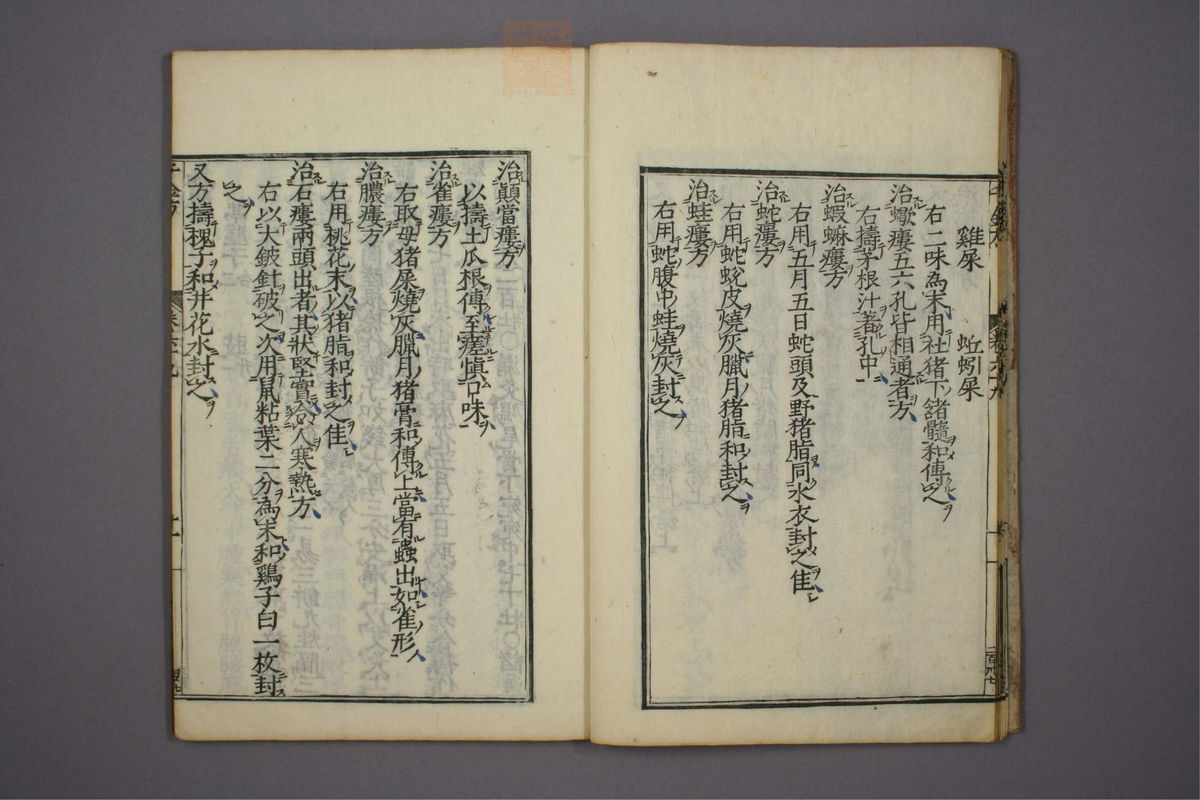 雞屎　蚯蚓屎
右二味為末用社猪下諸髓和傅之
治蠍瘻五六孔皆相通者方
右擣茅根汁著孔中
治蝦蟇瘻方
右用五月五日蛇頭及野猪脂同水衣封之佳
治蛇瘻方
右用蛇蛻皮燒灰臘月猪脂和封之
治蛙瘻方
右用蛇腹中蛙燒灰封之
治顛當瘻方
以擣土瓜根傅至瘥慎口味
治雀瘻方
右取母猪屎燒灰臘月猪膏和傅上當有蟲出如雀形
治膿瘻方
右用桃花末以猪脂和封之佳
治石瘻兩頭出者其狀堅實令人寒熱方
右以大鈹針破之次用鼠粘葉二分為末和鷄子白一枚封
之
又方擣槐子和井花水封之